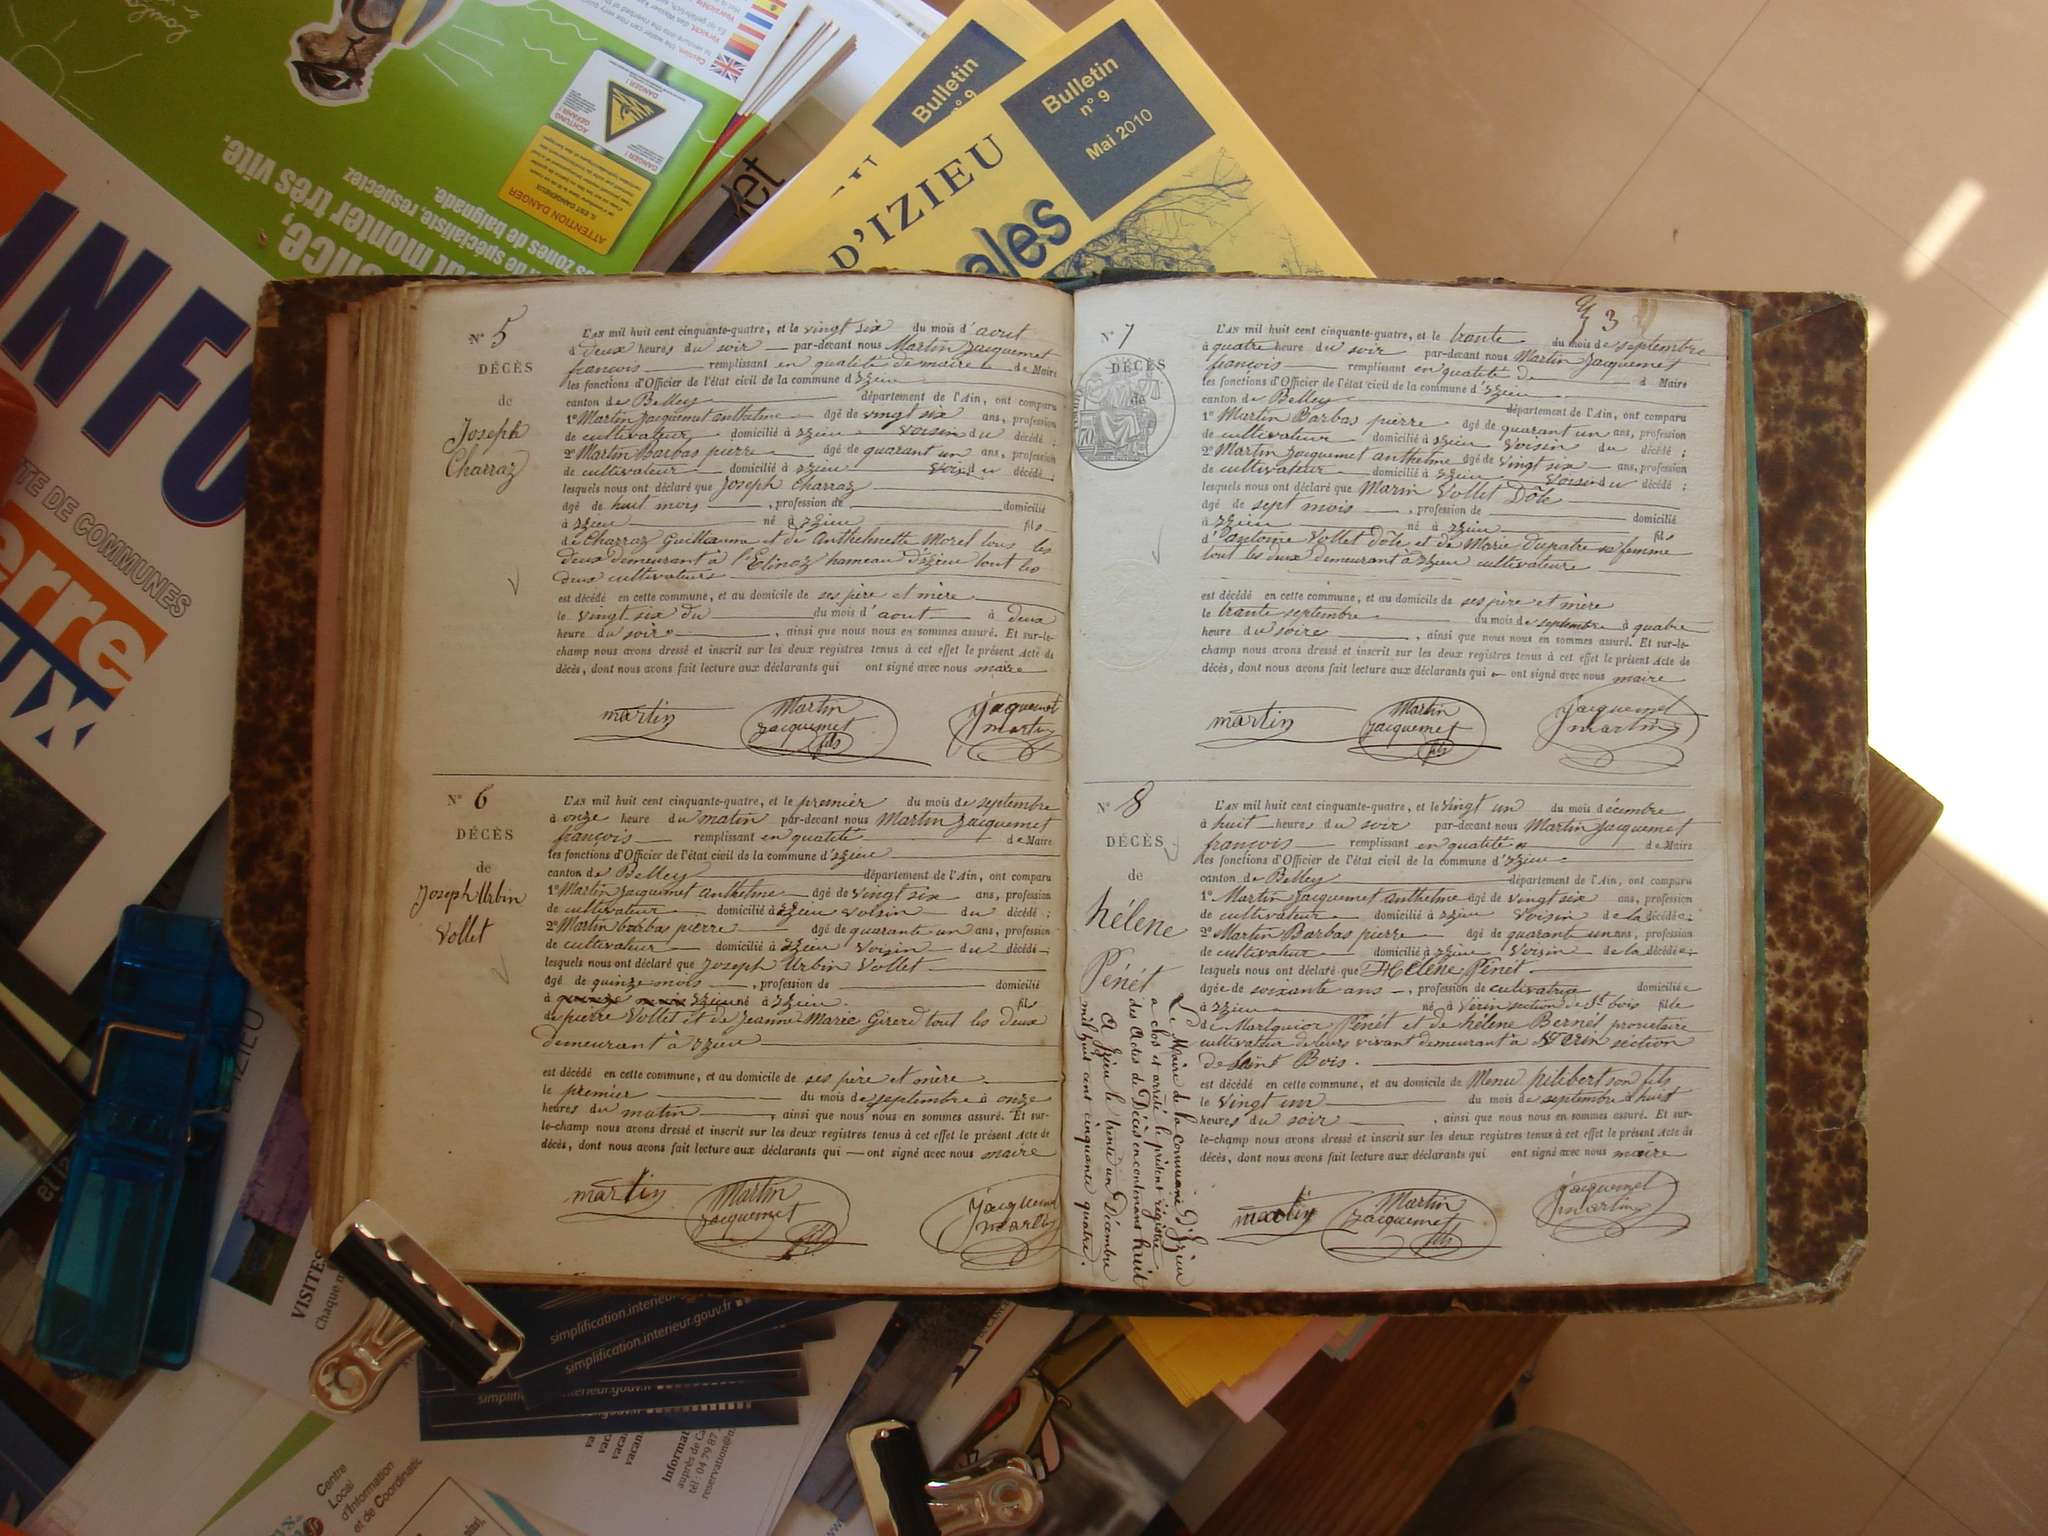 Bulletin
n° 9
Bulletin
n° 9
Mai 2010
D'IZIEU
ales
INFO
TE DE COMMUNES
erre
UX
ATTENTION DANGER
DANGER !
très vite.
out monter
zones de baignade.
de spécialiste, respectez
N° 5
DÉCÈS
de
Joseph
Charraz
L'AN mil huit cent cinquante-quatre, et le vingt six du mois d'aout
à deux heures du soir par-devant nous Martin Jacquemet
françois remplissant en qualeté de maire de Maire
les fonctions d'Officier de l'état civil de la commune d'Izieu
canton de Belley département de l'Ain, ont comparu
1° Martin Jacquemet anthelme âgé de vingt six ans, profession
de cultivateur domicilié à Izieu voisin du décédé ;
2° Martin Barbas pierre âgé de quarant un ans, profession
de cultivateur domicilié à Izieu voisin du décédé ;
lesquels nous ont déclaré que Joseph Charraz
âgé de huit mois , profession de domicilié
à Izieu né à Izieu fils
de Charraz Guillaume et de Anthelmette Morel tous les
deux demeurant à l'Elinaz hameau d'izieu tout les
deux cultivateurs
est décédé en cette commune, et au domicile de ses père et mère
le vingt six du du mois d'aout à deux
heure du soir , ainsi que nous nous en sommes assuré. Et sur-le-
champ nous avons dressé et inscrit sur les deux registres tenus à cet effet le présent Acte de
décès, dont nous avons fait lecture aux déclarants qui ont signé avec nous maire
martin Martin jacquemet fils jacquemet martin
N° 6
DÉCÈS
de
Joseph Urbin
Vollet
L'AN mil huit cent cinquante-quatre, et le premier du mois de septembre
à onze heure du matin par-devant nous Martin Jacquemet
françois remplissant en qualité de Maire
les fonctions d'Officier de l'état civil de la commune d'Izieu
canton de Belley département de l'Ain, ont comparu
1° Martin Jacquemet anthelme âgé de vingt six ans, profession
de cultivateur domicilié à Izieu voisin du décédé ;
2° Martin barbas pierre âgé de quarante un ans, profession
de cultivateur domicilié à Izieu voisin du décédé
lesquels nous ont déclaré que Joseph Urbin Vollet
âgé de quinze mois , profession de domicilié
à quinze mois Izieu né à Izieu fils
de pierre Vollet et de Jeanne Marie Girerd tout les deux
demeurant à Izieu
est décédé en cette commune, et au domicile de ses père et mère
le premier du mois de septembre à onze
heures du matin , ainsi que nous nous en sommes assuré. Et sur-
le-champ nous avons dressé et inscrit sur les deux registres tenus à cet effet le présent Acte de
décès, dont nous avons fait lecture aux déclarants qui ont signé avec nous maire
martin Martin jacquemet fils jacquemet martin
3
N° 7
DÉCÈS
de
L'AN mil huit cent cinquante-quatre, et le trante du mois de septembre
à quatre heure du soir par-devant nous Martin Jacquemet
françois remplissant en qualité de d Maire
les fonctions d'Officier de l'état civil de la commune d'Izieu
canton de Belley département de l'Ain, ont comparu
1° Martin Barbas pierre âgé de quarant un ans, profession
de cultivateur domicilié à Izieu voisin du décédé ;
2° Martin Jacquemet anthelme âgé de vingt six ans, profession
de cultivateur domicilié à Izieu voisin du décédé ;
lesquels nous ont déclaré que Marin Vollet Dôle
âgé de sept mois , profession de domicilié
à Izieu né à Izieu fils
d'antoine Vollet dole et de Marie dupatre sa femme
tout les deux demeurant à Izieu cultivateurs
est décédé en cette commune, et au domicile de ses père et mère
le trante septembre du mois de septembre à quatre
heure du soire , ainsi que nous nous en sommes assuré. Et sur-le-
champ nous avons dressé et inscrit sur les deux registres tenus à cet effet le présent Acte de
décès, dont nous avons fait lecture aux déclarants qui ont signé avec nous maire
martin Martin jacquemet fils jacquemet martin
N° 8
DÉCÈS
de
hélene
Pénét
L'AN mil huit cent cinquante-quatre, et le vingt un du mois décembre
à huit heures du soir par-devant nous Martin Jacquemet
françois remplissant en qualité de Maire
les fonctions d'Officier de l'état civil de la commune d'Izieu
canton de Belley département de l'Ain, ont comparu
1° Martin Jacquemet anthelme âgé de vingt six ans, profession
de cultivateur domicilié à Izieu voisin de la décédée
2° Martin Barbas pierre âgé de quarant un ans, profession
de cultivateur domicilié à Izieu voisin de la décédée
lesquels nous ont déclaré que Hélène Pénét
âgée de soixante ans , profession de cultivatrice domiciliée
à Izieu né à Vérin section de St bois fille
de Marlquior Pénét et de hélene Bernét
cultivateur de leurs vivant demeurant à section
de Saint Bois.
est décédé en cette commune, et au domicile de Menu pilibert son fils
le vingt un du mois de septembre à huit
heures du soir , ainsi que nous nous en sommes assuré. Et sur-
le-champ nous avons dressé et inscrit sur les deux registres tenus à cet effet le présent Acte de
décès, dont nous avons fait lecture aux déclarants qui ont signé avec nous maire
martin Martin jacquemet fils jacquemet martin
Le Maire de la commune d'Izieu
a clos et arrêté le présent régistre
des actes de Décès en contenant huit
A Izieu le trente un Décembre
mil huit cent cinquante quatre.
VISITES
simplification.interieur.gouv.fr
simplification.interieur.gouv.fr
Centre
Local
d'Information
et de Coordinatic